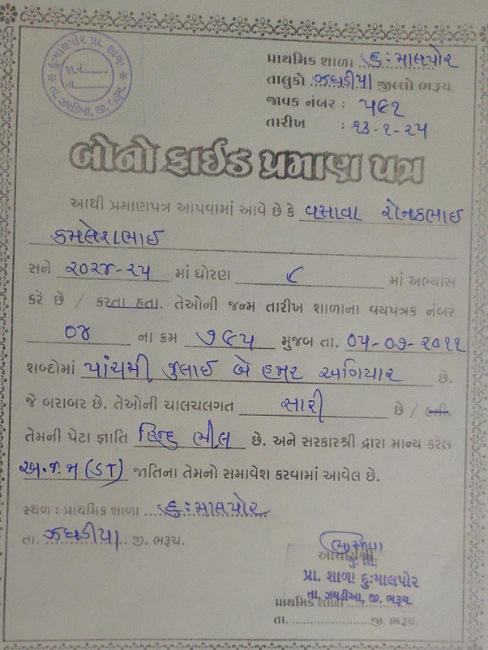 દુ:માલપોર પ્રા. શાળા
જા.નં.........
તા.........
તા. ઝઘડીઆ, જી. ભરૂચ.
પ્રાથમિક શાળા દુ:માલપોર
તાલુકો ઝઘડીયા જીલ્લો ભરૂચ
જાવક નંબર : ૫૯૧
તારીખ : ૧૩-૧-૨૫
બોનોફાઈડ પ્રમાણ પત્ર
આથી પ્રમાણપત્ર આપવામાં આવે છે કે વસાવા રોનકભાઈ
કમલેશભાઈ
સને ૨૦૨૪-૨૫ માં ધોરણ ૮ માં અભ્યાસ
કરે છે / કરતા હતા. તેઓની જન્મ તારીખ શાળાના વયપત્રક નંબર
૦૪ ના ક્રમ ૭૯૫ મુજબ તા. ૦૫-૦૭-૨૦૧૧
શબ્દોમાં પાંચમી જુલાઈ બે હજાર અગિયાર છે.
જે બરાબર છે. તેઓની ચાલચલગત સારી છે / હતી.
તેમની પેટા જ્ઞાતિ હિન્દુ ભીલ છે. અને સરકારશ્રી દ્વારા માન્ય કરેલ
અ.જ.જ (ST) જાતિના તેમનો સમાવેશ કરવામાં આવેલ છે.
સ્થળ : પ્રાથમિક શાળા દુ:માલપોર
તા. ઝઘડીયા જી. ભરૂચ.
આચાર્યશ્રી
પ્રા. શાળા દુ:માલપોર
તા. ઝઘડીઆ, જી. ભરૂચ.
પ્રાથમિક શાળા
તા. .................... જી. ભરૂચ.